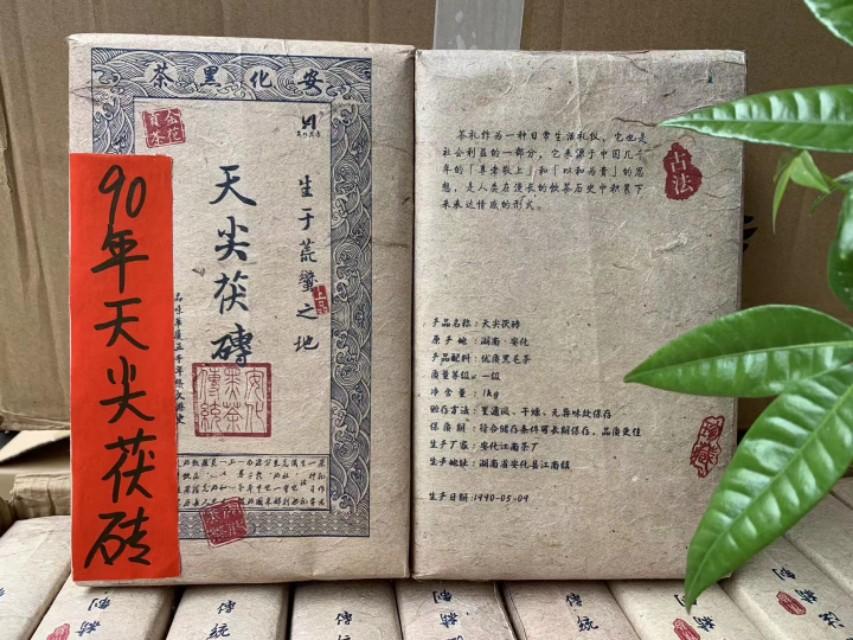 安化黑茶
金花
贡茶
生于荒蠻之地
上品
天尖茯磚
安化
黑茶
傳統
90年天尖茯砖
茶礼作为一种日常生活礼仪，它也是
社会利益的一部分，它来源于中国几千
年的「尊老敬上」和「以和为贵」的思
想，是人类在漫长的饮茶历史中积累下
来表达情感的形式。
古法
产品名称：天尖茯砖
原产地：湖南·安化
产品配料：优质黑毛茶
质量等级：一级
净含量：1kg
贮存方法：置通风、干燥、无异味处保存
保质期：符合储存条件可长期保存，品质更佳
生产厂家：安化江南茶厂
生产地址：湖南省安化县江南镇
生产日期:1990-05-09
珍藏
精制
傳統
傳統
精制
傳統
精制